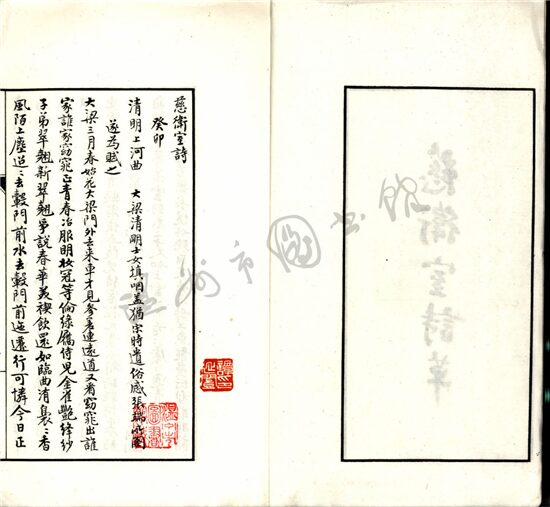 慈衛室詩
癸卯
清明上河曲 大梁清明士女填咽蓋猶宋時遺俗感張端圖
遂為賦之
大梁三月春始花大梁門外去來車才見參差連遠道又看窈窕出誰
家誰家窈窕正青春冶服明妝冠等倫綠幘侍兒金雀艷絳紗
子弟翠翹新翠翹爭說春華美禊飲還如臨曲清裊〻香
風陌上塵迢〻去轂門前水去轂門前迤邐行可憐今日正
慈衛室詩草
溫州市圖書館